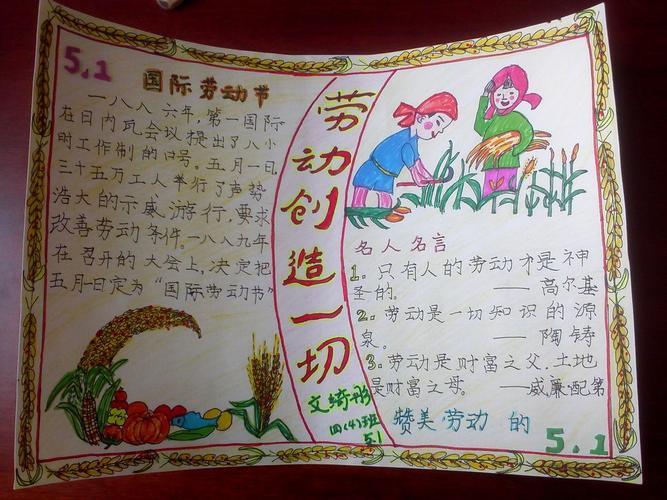 5.1
国际劳动节
一八八六年,第一国际
在日内瓦会议提出了八小
时工作制的口号。五月一日,
三十五万工人举行了声势
浩大的示威游行,要求
改善劳动条件。一八八九年
在召开的大会上,决定把
五月一日定为“国际劳动节”
劳动创造一切
文绮
四(4)班
5.1
名人名言
1. 只有人的劳动才是神
圣的。 —— 高尔基
2. 劳动是一切知识的源
泉。 —— 陶铸
3. 劳动是财富之父,土地
是财富之母。 ——威廉·配第
赞美劳动的
5.1